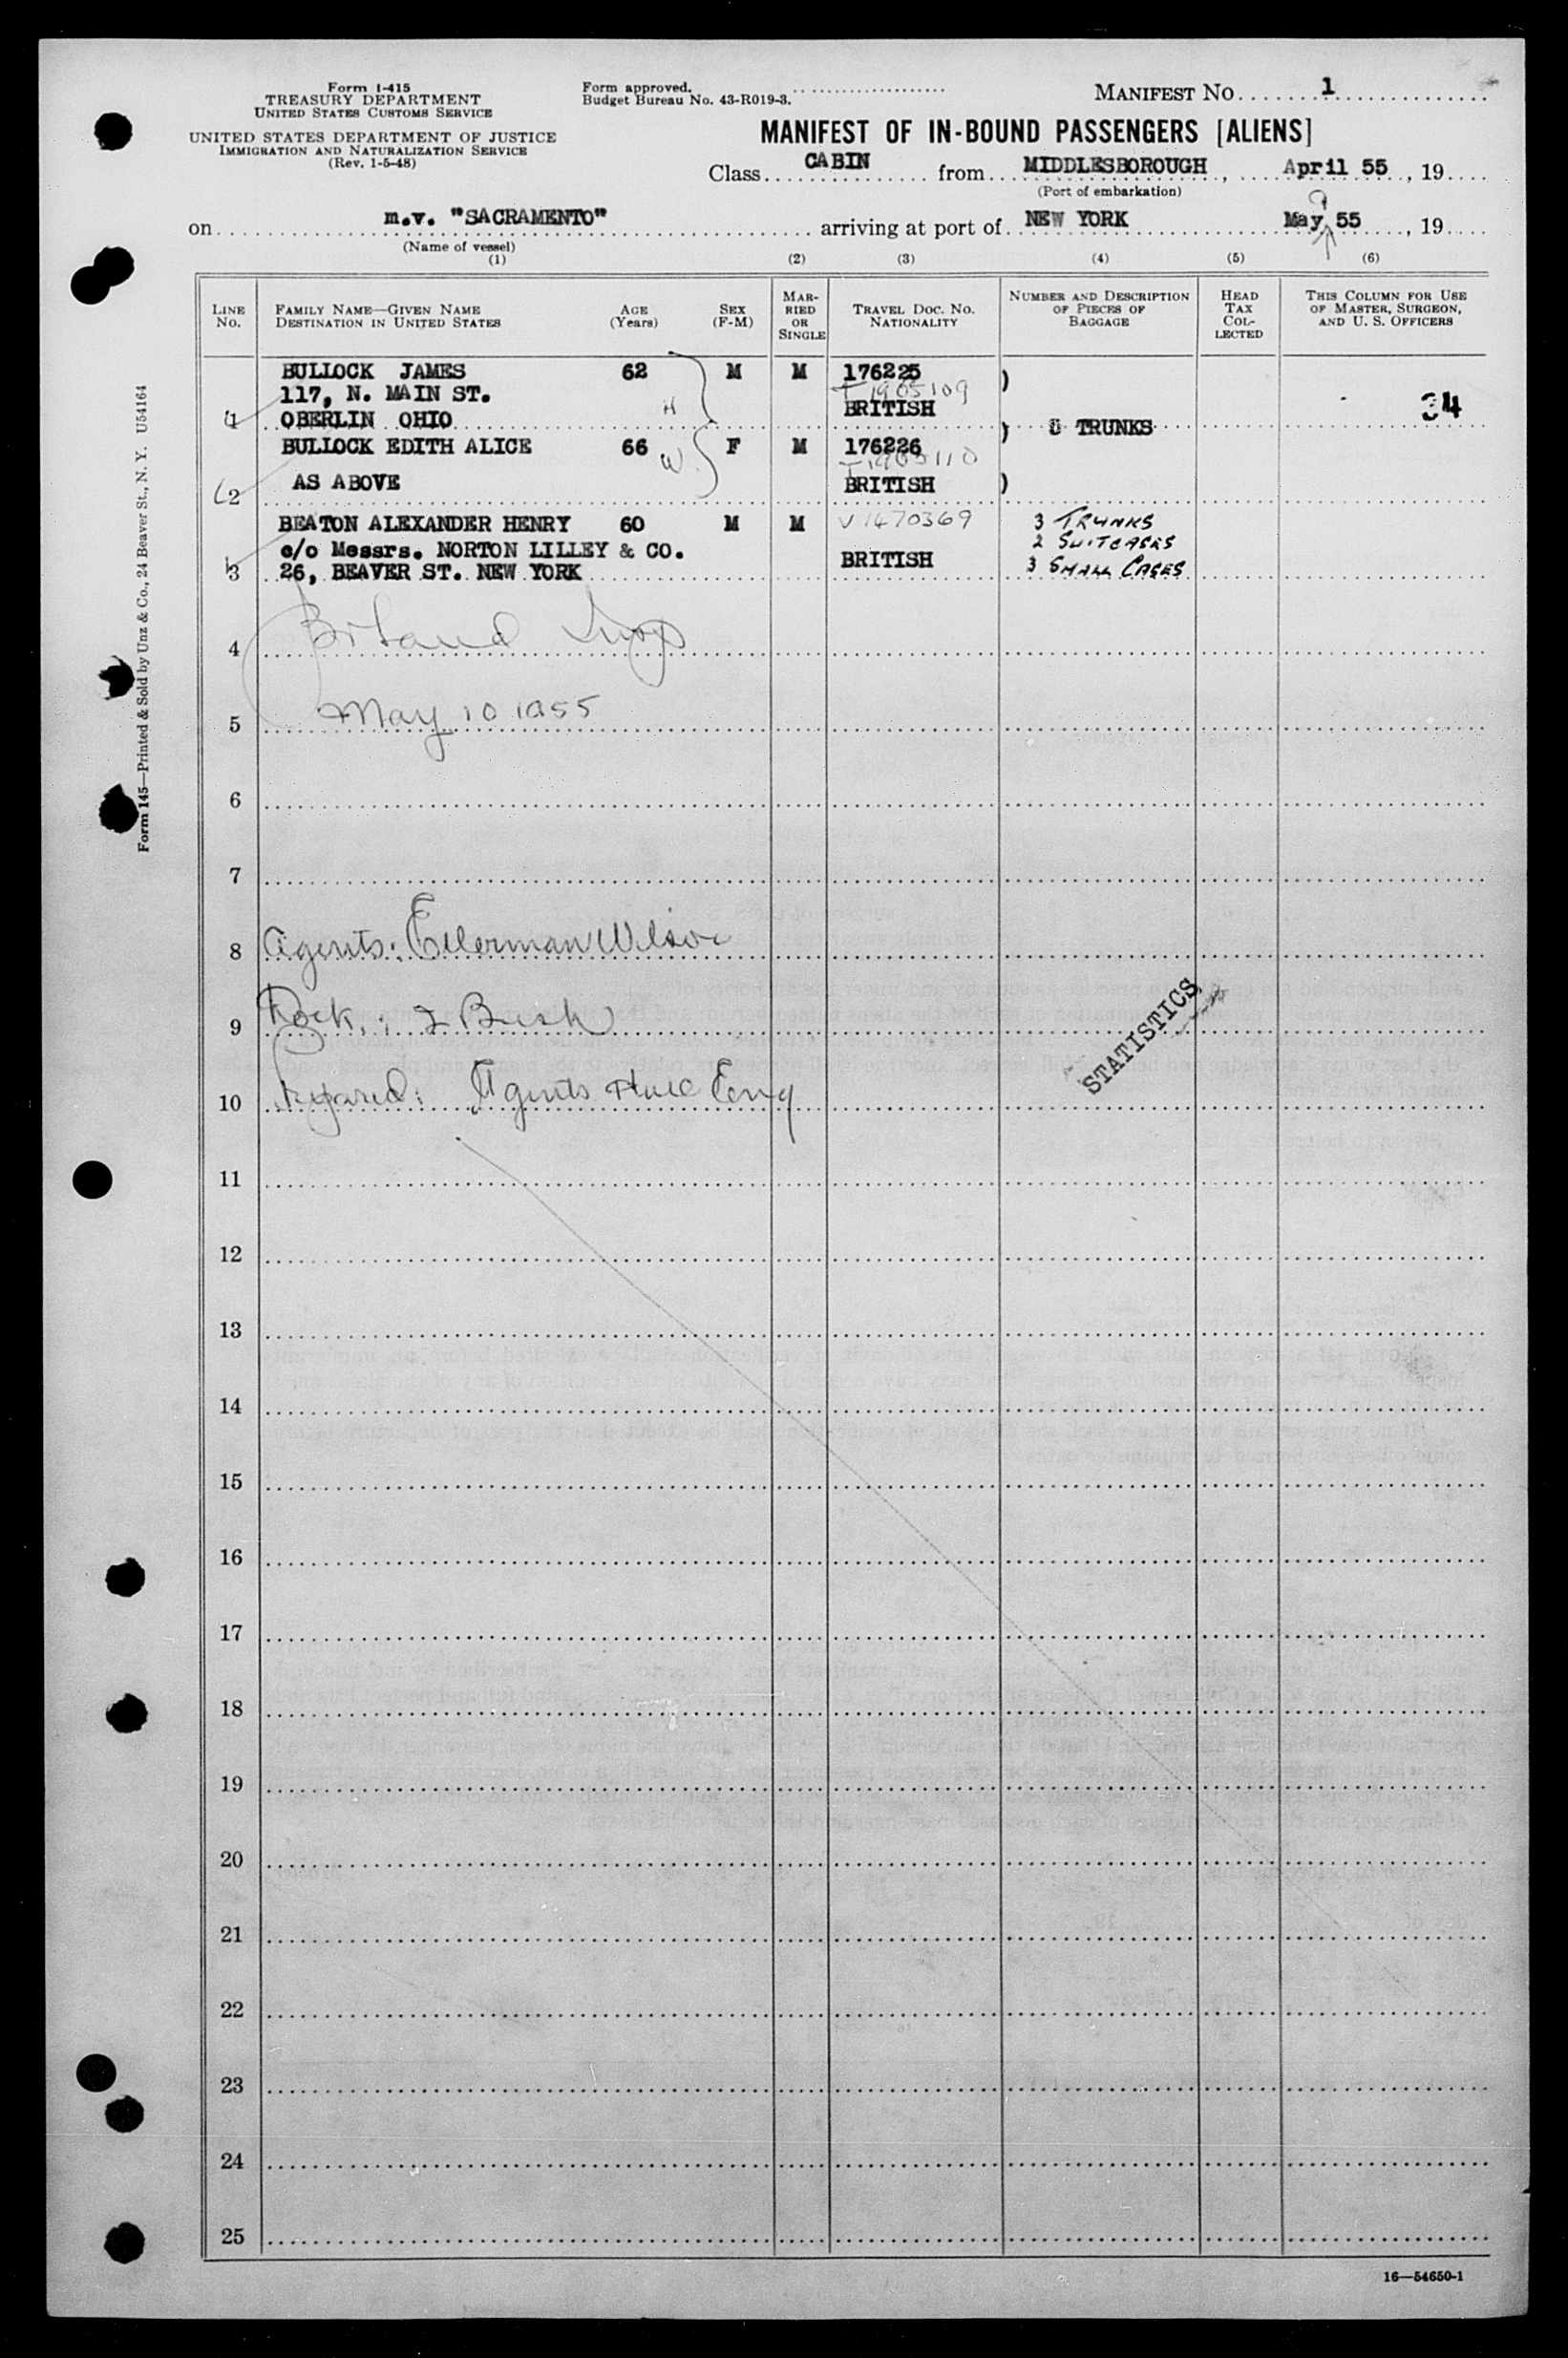 Form I-415
TREASURY DEPARTMENT
UNITED STATES CUSTOMS SERVICE
UNITED STATES DEPARTMENT OF JUSTICE
IMMIGRATION AND NATURALIZATION SERVICE
(Rev. 1-5-48)
Form approved.
Budget Bureau No. 43-R019-3.
MANIFEST NO. 1
MANIFEST OF IN-BOUND PASSENGERS [ALIENS]
Class CABIN from MIDDLESBOROUGH, April 55, 19
(Port of embarkation)
on m.v. "SACRAMENTO" arriving at port of NEW YORK May 9 55, 19
(Name of vessel)
(1) (2) (3) (4) (5) (6)
LINE NO.
FAMILY NAME—GIVEN NAME
DESTINATION IN UNITED STATES
AGE (Years)
SEX (F-M)
MARRIED OR SINGLE
TRAVEL DOC. NO. NATIONALITY
NUMBER AND DESCRIPTION OF PIECES OF BAGGAGE
HEAD TAX COLLECTED
THIS COLUMN FOR USE OF MASTER, SURGEON, AND U. S. OFFICERS
BULLOCK JAMES 62 M M 176225 )
117, N. MAIN ST. T 1905109
1 OBERLIN OHIO H BRITISH 34
BULLOCK EDITH ALICE 66 W F M 176226 ) TRUNKS
T 1905110
2 AS ABOVE BRITISH )
BEATON ALEXANDER HENRY 60 M M V 1470369 3 TRUNKS
c/o Messrs. NORTON LILLEY & CO. BRITISH 2 SUITCASES
3 26, BEAVER ST. NEW YORK 3 SMALL CASES
4
5 May 10 1955
6
7
8 Agents: Ellerman Wilson
9 Dock: Bush
10 Agents Hull Eng
STATISTICS
11
12
13
14
15
16
17
18
19
20
21
22
23
24
25
16—54650-1
Form 145—Printed & Sold by Unz & Co., 24 Beaver St., N. Y. U54164